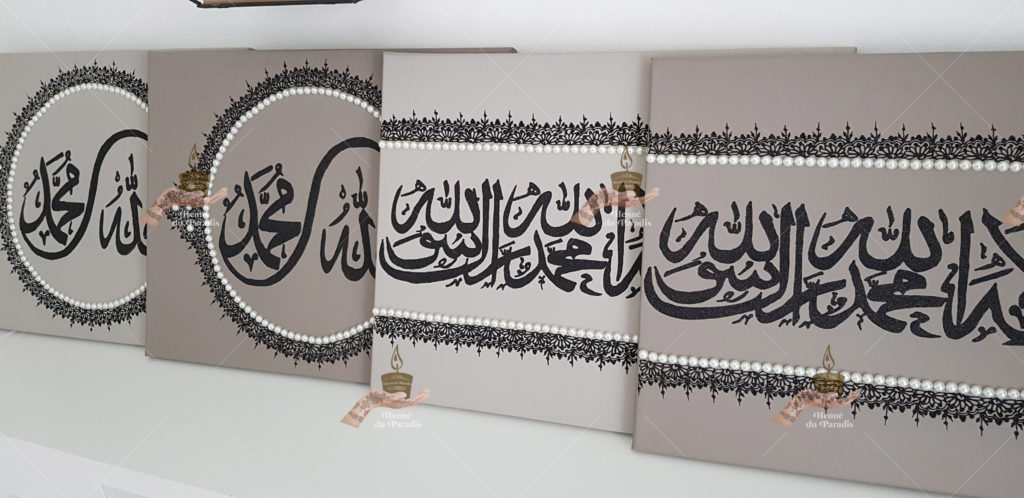 الله محمد
الله محمد
لا إله إلا الله محمد رسول الله
لا إله إلا الله محمد رسول الله
Henné
du Paradis
Henné
du Paradis
Henné
du Paradis
Henné
du Paradis